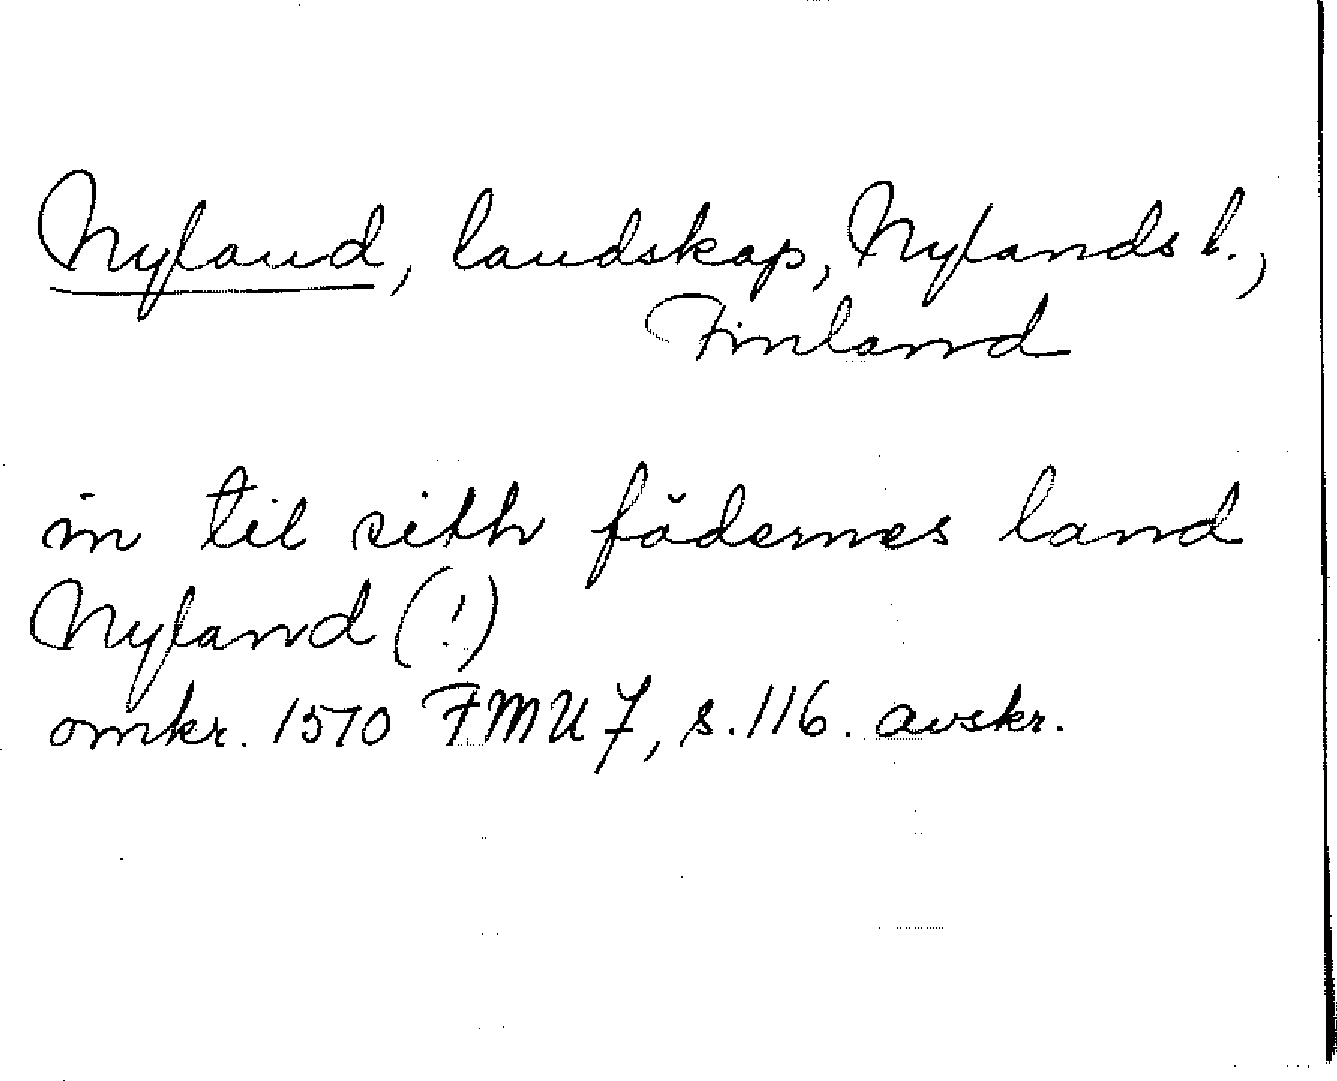 Nyland, landskap, Nylands l.,
Finland
in til sith fädernes land
Nyland (!)
omkr. 1510 FMU 7, s. 116. avskr.